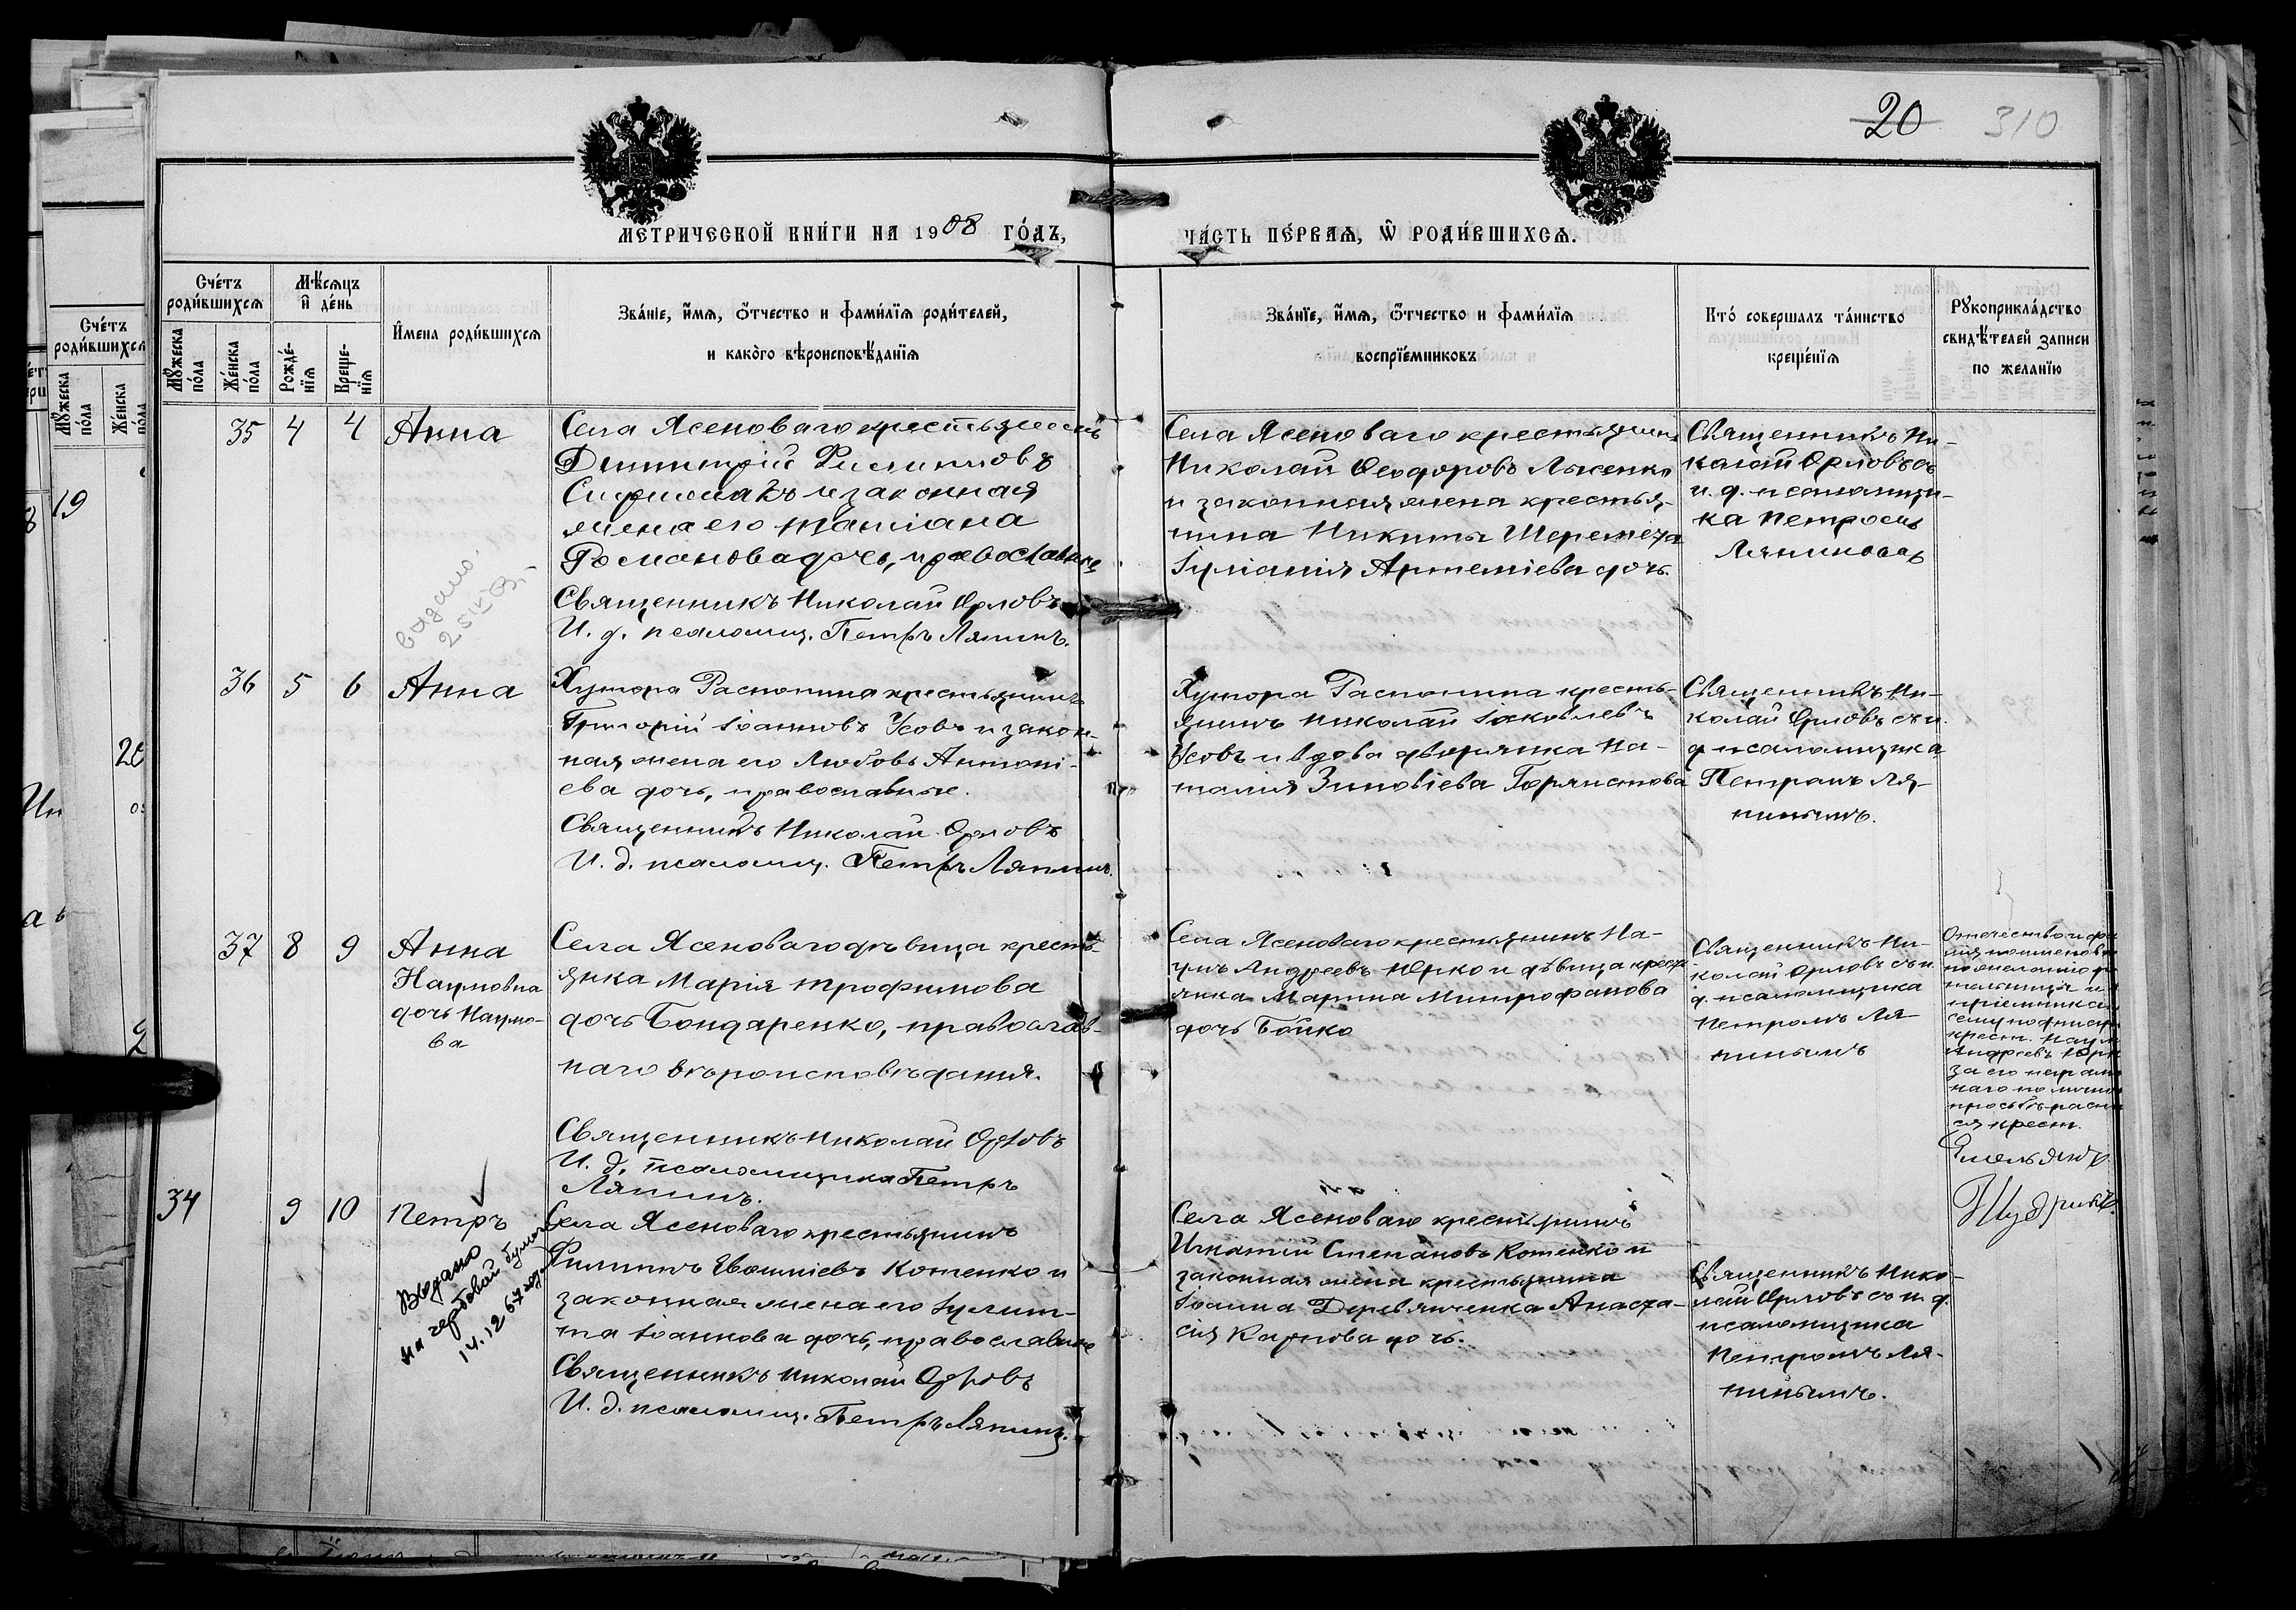 20 310
МЕТРИЧЕСКОЙ КНИ́ГИ НА 1908 ГО́ДЪ,
ЧА́СТЬ ПЕ́РВАѦ, Ѡ҆ РОДИ́ВШИХСѦ.
Сче́тъ роди́вшихсѧ
Мѣ́сѧцъ и҆ де́нь
Мꙋ́жеска по́ла
Же́нска по́ла
Рожде́-нїѧ
Креще-нїѧ
И҆мена роди́вшихсѧ
Зва́нїе, и҆́мѧ, ѻ҆́тчество и фами́лїѧ роди́телей,
и како́го вѣроисповѣ́данїѧ
Зва́нїе, и҆́мѧ, ѻ҆́тчество и фами́лїѧ
воспрїе́мниковъ
Кто́ совершалъ та́инство
креще́нїѧ
Рꙋкоприкла́дство
свидѣ́телей записи
по желанїю
35 4 4 Анна
Села Ясеноваго крестьянинъ
Димитрій Филипповъ
и законная
жена его Татіана
Романова дочь, православные
Священникъ Николай Орловъ
И. д. псаломщ. Петръ Ляпинъ.
выдано
Села Ясеноваго крестьянинъ
Николай Ѳеодоровъ Лысенко
и законная жена крестья-
нина Никиты Шеремета
Іуліанія Артеміева дочь.
Священникъ Ни-
колай Орловъ съ
и. д. псаломщи-
ка Петромъ
Ляпинымъ
36 5 6 Анна
Хутора Распопина крестьянинъ
Григорій Іоанновъ Усовъ и закон-
ная жена его Любовь Антоні-
ева дочь, православные.
Священникъ Николай Орловъ
И. д. псаломщ. Петръ Ляпинъ.
Хутора Распопина кресть-
янинъ Николай Іаковлевъ
Усовъ и вдова дворянка На-
талія Зиновіева
Священникъ Ни-
колай Орловъ съ и.
д. псаломщика
Петромъ Ля-
пинымъ.
37 8 9 Анна
Наумовна
дочь Наумо-
ва
Села Ясеноваго дѣвица кресть-
янка Марія Трофимова
дочь Бондаренко, православ-
наго вѣроисповѣданія.
Священникъ Николай Орловъ
И. д. псаломщика Петръ
Ляпинъ.
Села Ясеноваго крестьянинъ На-
умъ Андреевъ Юрко и дѣвица кресть-
янка Марина Митрофанова
дочь Бойко
Священникъ Ни-
колай Орловъ съ и.
д. псаломщика
Петромъ Ля-
пинымъ
Отечество и фа
по желанію
крест. Наум
Андреевъ Юрк
за его неграмот
наго по личной
просьбѣ распи
ся крест.
34 9 10 Петръ
Выдано
на гербовой бумаге
14.12 67 года
Села Ясеноваго крестьянинъ
Филиппъ Котенко и
законная жена его Іулит-
та Іоаннова дочь, православные
Священникъ Николай Орловъ
И. д. псаломщ. Петръ Ляпинъ.
Села Ясеноваго крестьянинъ
Игнатій Степановъ Котенко и
законная жена крестьянина
Іоанна Деревянченка Анаста-
сія Карпова дочь.
Священникъ Нико-
лай Орловъ съ и. д.
псаломщика
Петромъ Ля-
пинымъ.
Сче́тъ
роди́вшихсѧ
Мꙋ́жеска по́ла
Же́нска по́ла
19